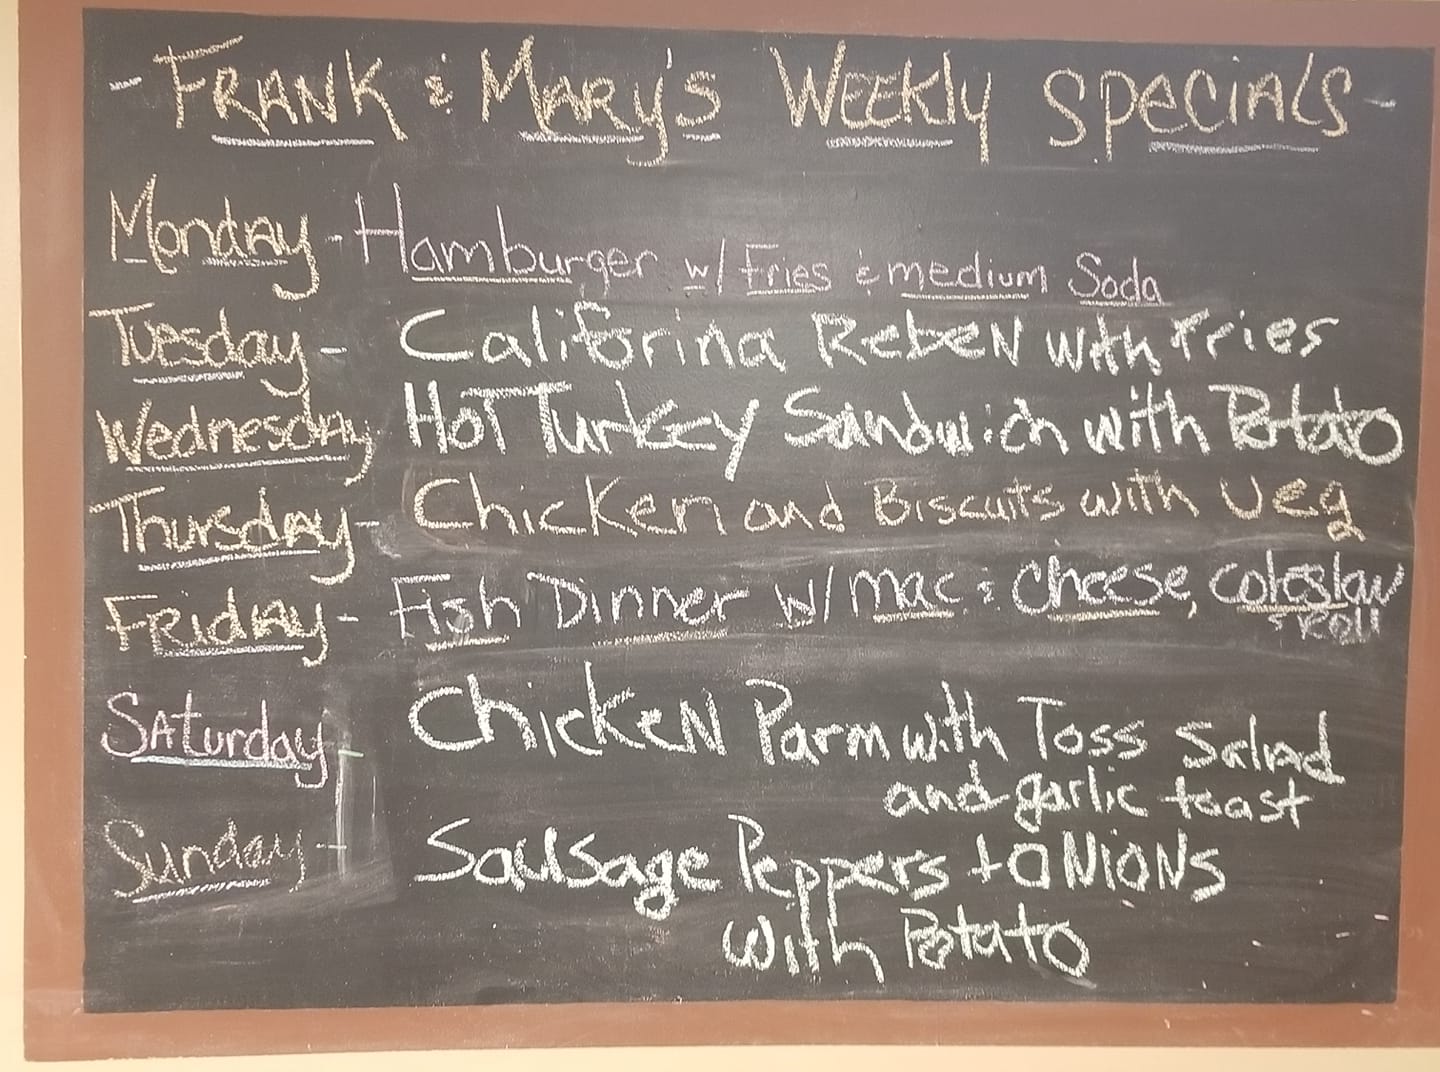 - FRANK & MARY'S WEEKLY SPECIALS -
Monday - Hamburger w/ Fries & medium Soda
Tuesday - Califorina Reben with Fries
Wednesday Hot Turkey Sandwich with Potato
Thursday - Chicken and Biscuits with Veg
Friday - Fish Dinner w/ mac & cheese, coleslaw
& Roll
Saturday - Chicken Parm with Toss Salad
and garlic toast
Sunday - Sausage Peppers + ONIONS
with Potato